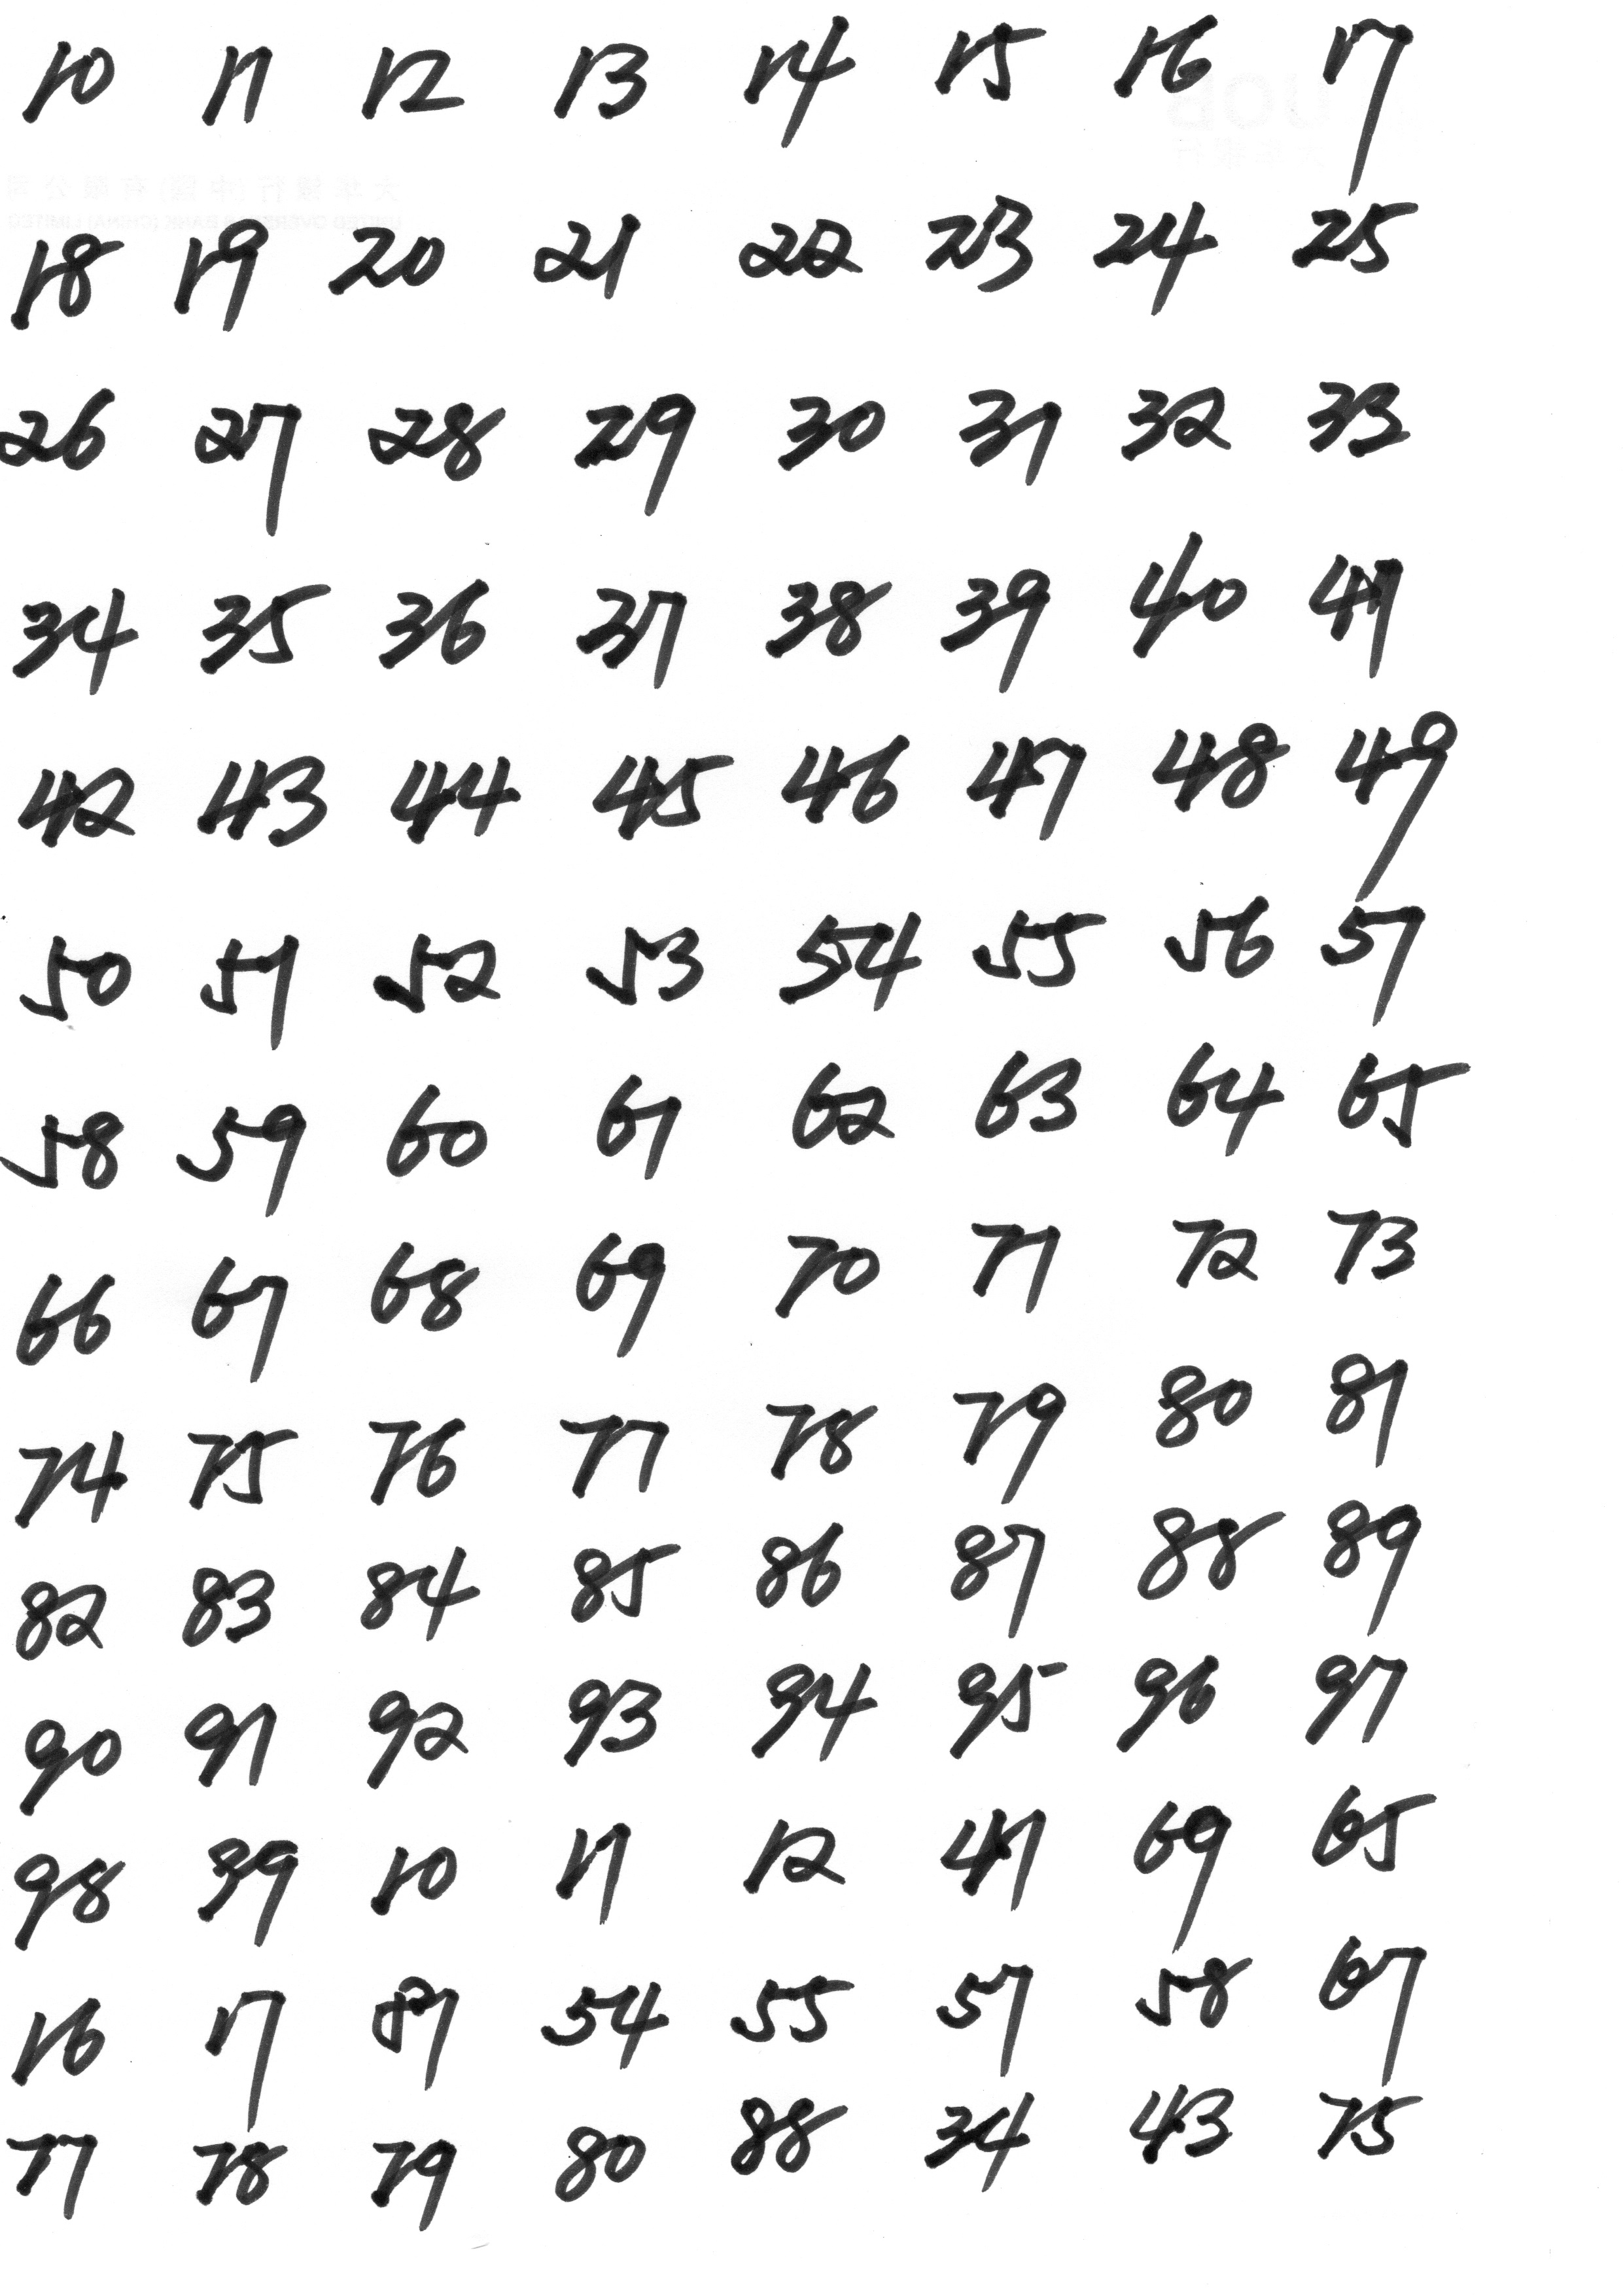 10 11 12 13 14 15 16 17
18 19 20 21 22 23 24 25
26 27 28 29 30 31 32 33
34 35 36 37 38 39 40 41
42 43 44 45 46 47 48 49
50 51 52 53 54 55 56 57
58 59 60 61 62 63 64 65
66 67 68 69 70 71 72 73
74 75 76 77 78 79 80 81
82 83 84 85 86 87 88 89
90 91 92 93 94 95 96 97
98 99 10 11 12 41 69 65
16 17 81 54 55 57 58 67
77 78 79 80 88 34 43 75